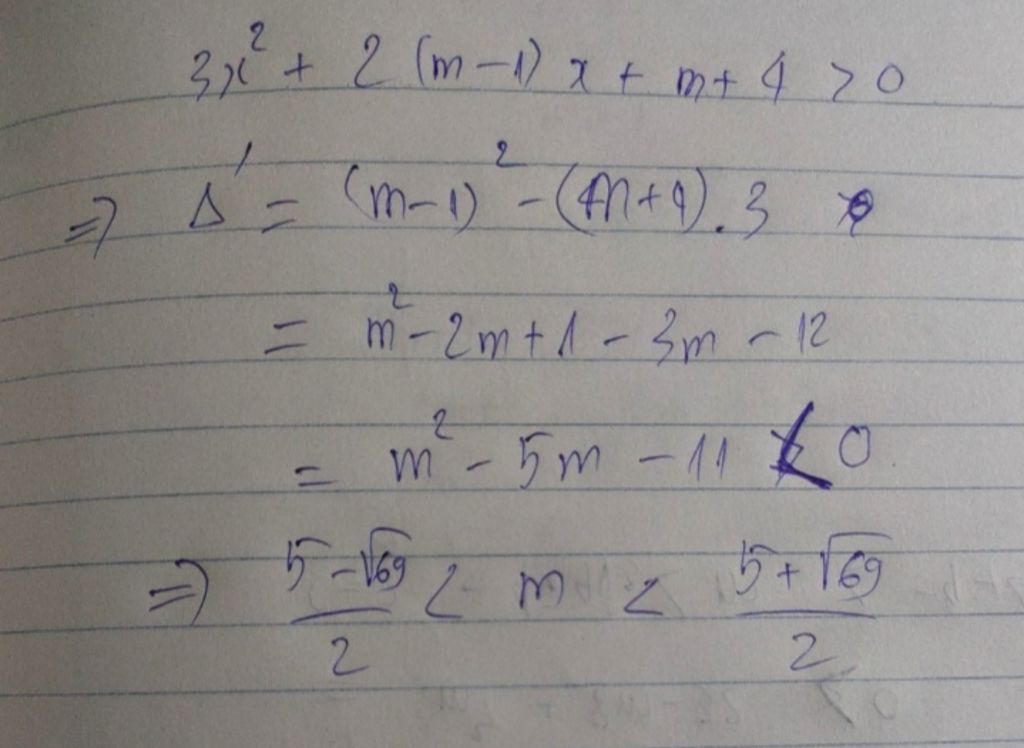 3x² + 2 (m-1) x + m + 4 > 0
⇒ Δ' = (m-1)² - (m+4).3
= m² - 2m + 1 - 3m - 12
= m² - 5m - 11 < 0
⇒ (5-√69)/2 < m < (5+√69)/2